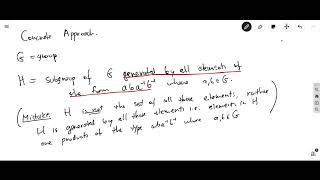 Concrete Approach.
G = group
H = subgroup of G generated by all elements of
the form aba⁻¹b⁻¹ where a,b ∈ G.
(Mistake: H is not the set of all these elements, rather
H is generated by all these elements i.e. elements in H
are products of the type aba⁻¹b⁻¹ where a,b ∈ G)